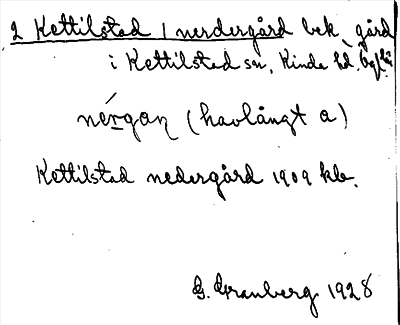 2 Kettilstad / nerdergård bek. gård
i Kettilstad sn, Kinda hd.
nérgaɳ (havlångt a)
Kettilstad nedergård 1909 kb.
G. Granberg 1928